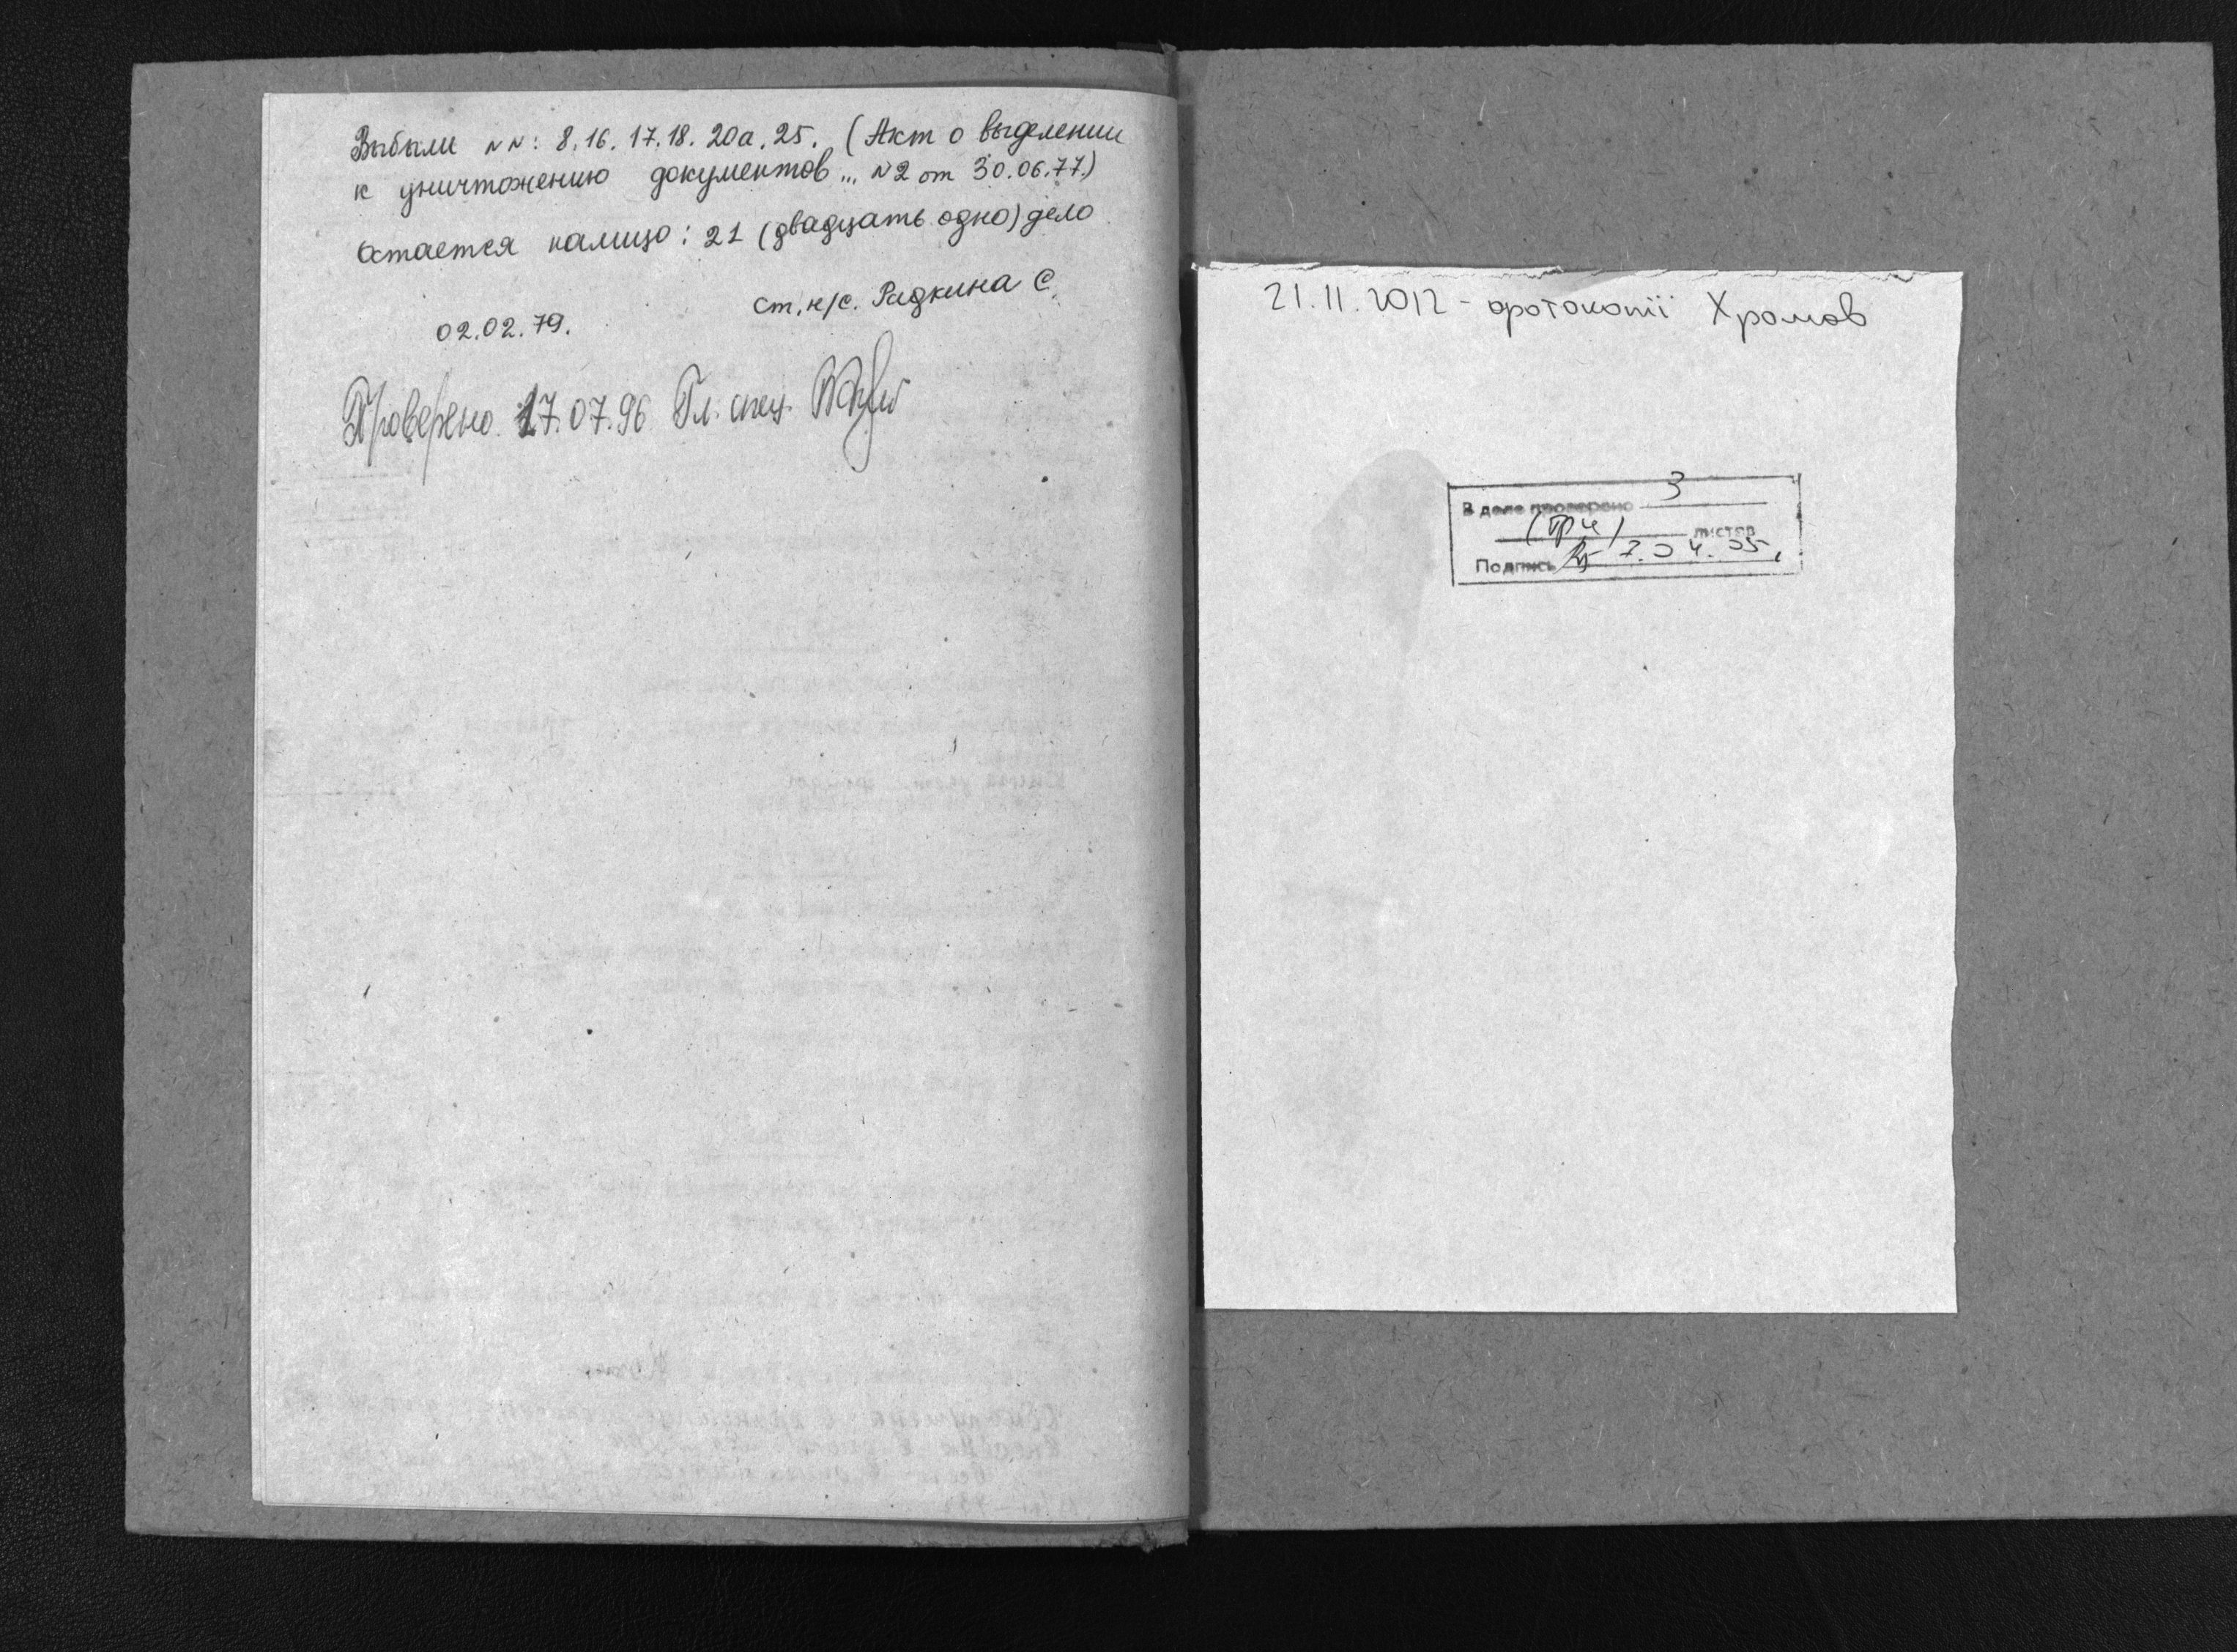 Выбыли NN: 8, 16. 17. 18. 20а. 25. (Акт о выделении
к уничтожению документов... N2 от 30.06.77.)
Остается налицо: 21 (двадцать одно) дело
ст. н/с. Радкина С.
02.02.79.
Проверено 17.07.96 Гл. спец.
21.11.2012 - фотокопії Храмов
В деле проверено 3
(три) листов
Подпись 7.04.05